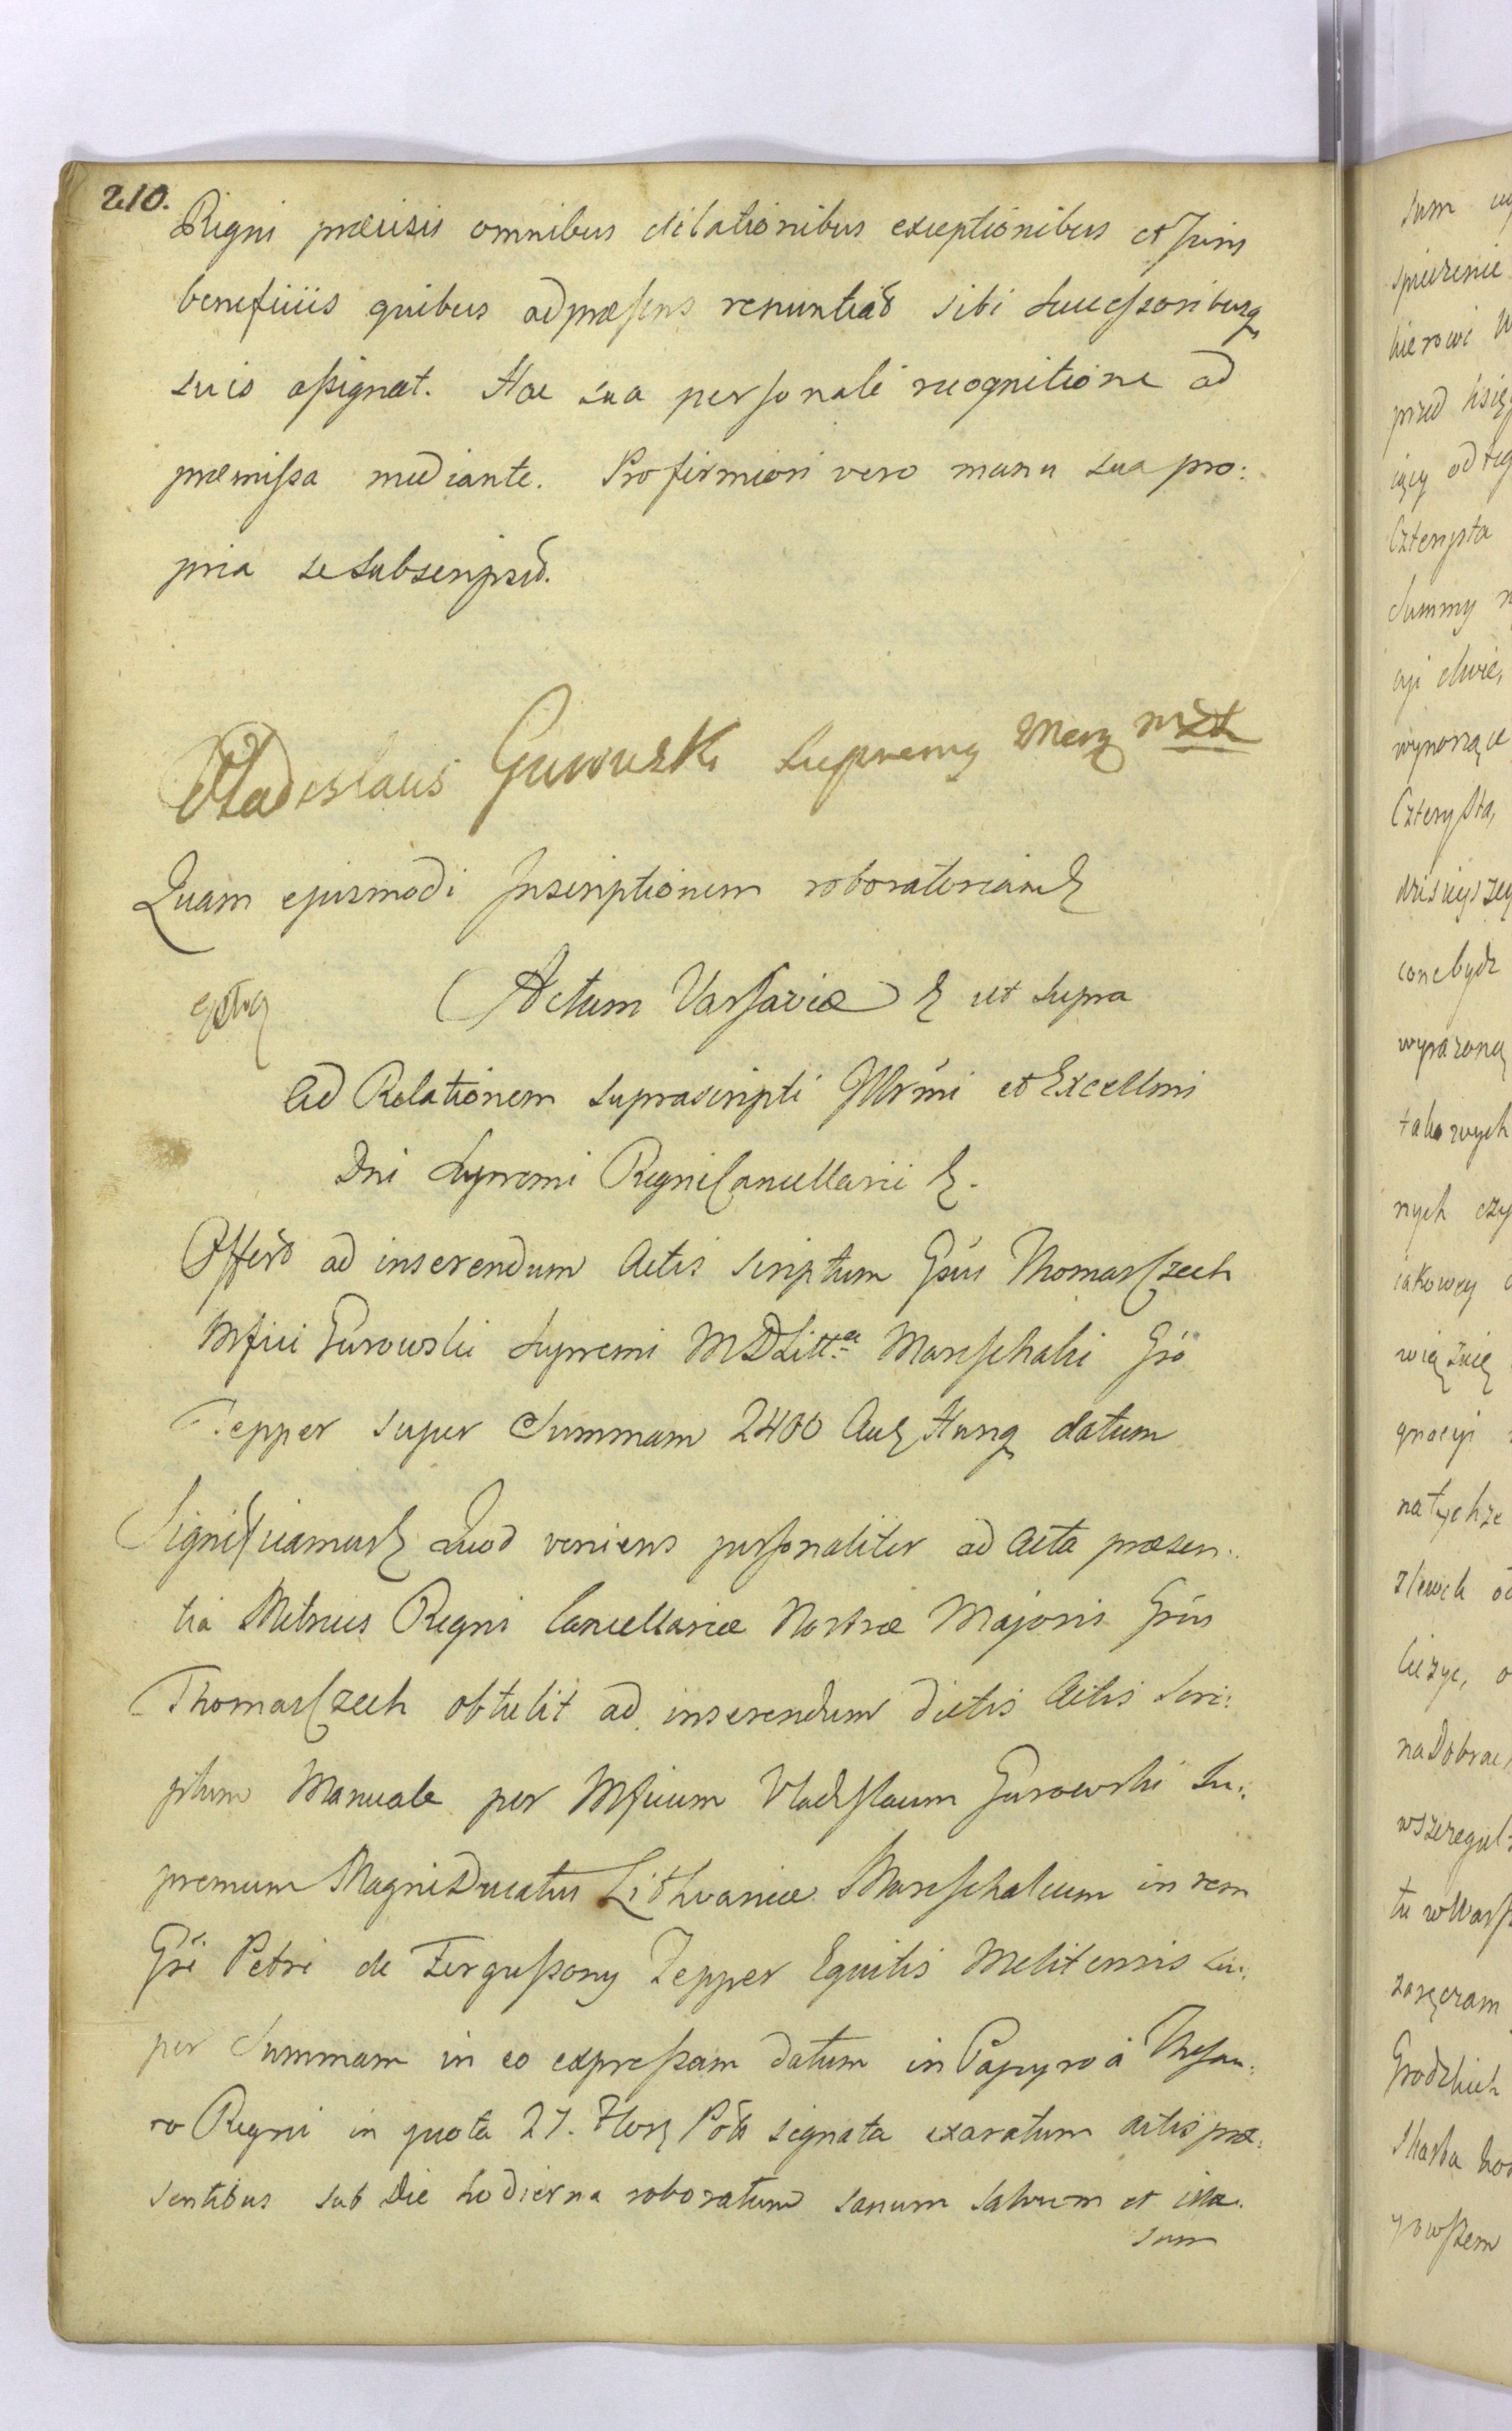 210.
Regni præcisis omnibus dilationibus exceptionibus et Juris
beneficiis quibus ad præsens renuntiat sibi Successoribusq
suis assignat. Hac sua personali recognitione ad
præmissa mediante. Pro firmiori vero manu sua pro:
pria se subscripsit.
Vladislaus Gurowski Supremy
Quam ejusmodi Inscriptionem roboratoriam
Actum Varsaviæ ut supra
Ad Relationem suprascripti Illrmi et Excellmi
Dni Supremi Regni Cancellarii
Offert ad inserendum Actis scriptum Gsus Thomas Czech
Mfici Gurowski Supremi M D Litt Mareschalci Gso
Tepper super Summam 2400 Aur Hung datum
Significamus Quod veniens personaliter ad Acta præsen:
tia Metrices Regni Cancellariæ Nostræ Majoris Gsus
Thomas Czech obtulit ad inserendum dictis Actis Scri:
ptum Manuale per Mficum Vladislaum Gurowski Su:
premum Magni Ducatus Lithvaniæ Mareschalcum in rem
Gsi Petri de Fergussony Tepper Equitis Melitensis Su:
per Summam in eo expressam datum in Papyro à Thesau:
ro Regni in quota 27. Flor Pol signata exaratum actis præ:
sentibus sub die hodierna roboratum sanum salvum et illæ:
sum
sum
spieczenie
hierowi
przed
iący od
Czterysta
Summy
wynoszące
Czterysta,
dzisieysze
conebydz
wyrazoną
takowych
nych
iakowey
gnacyi
natychze
liczyc,
na Dobrac
wszczegul
tu w Wars
zaręczam
Grodzkich
Skarba